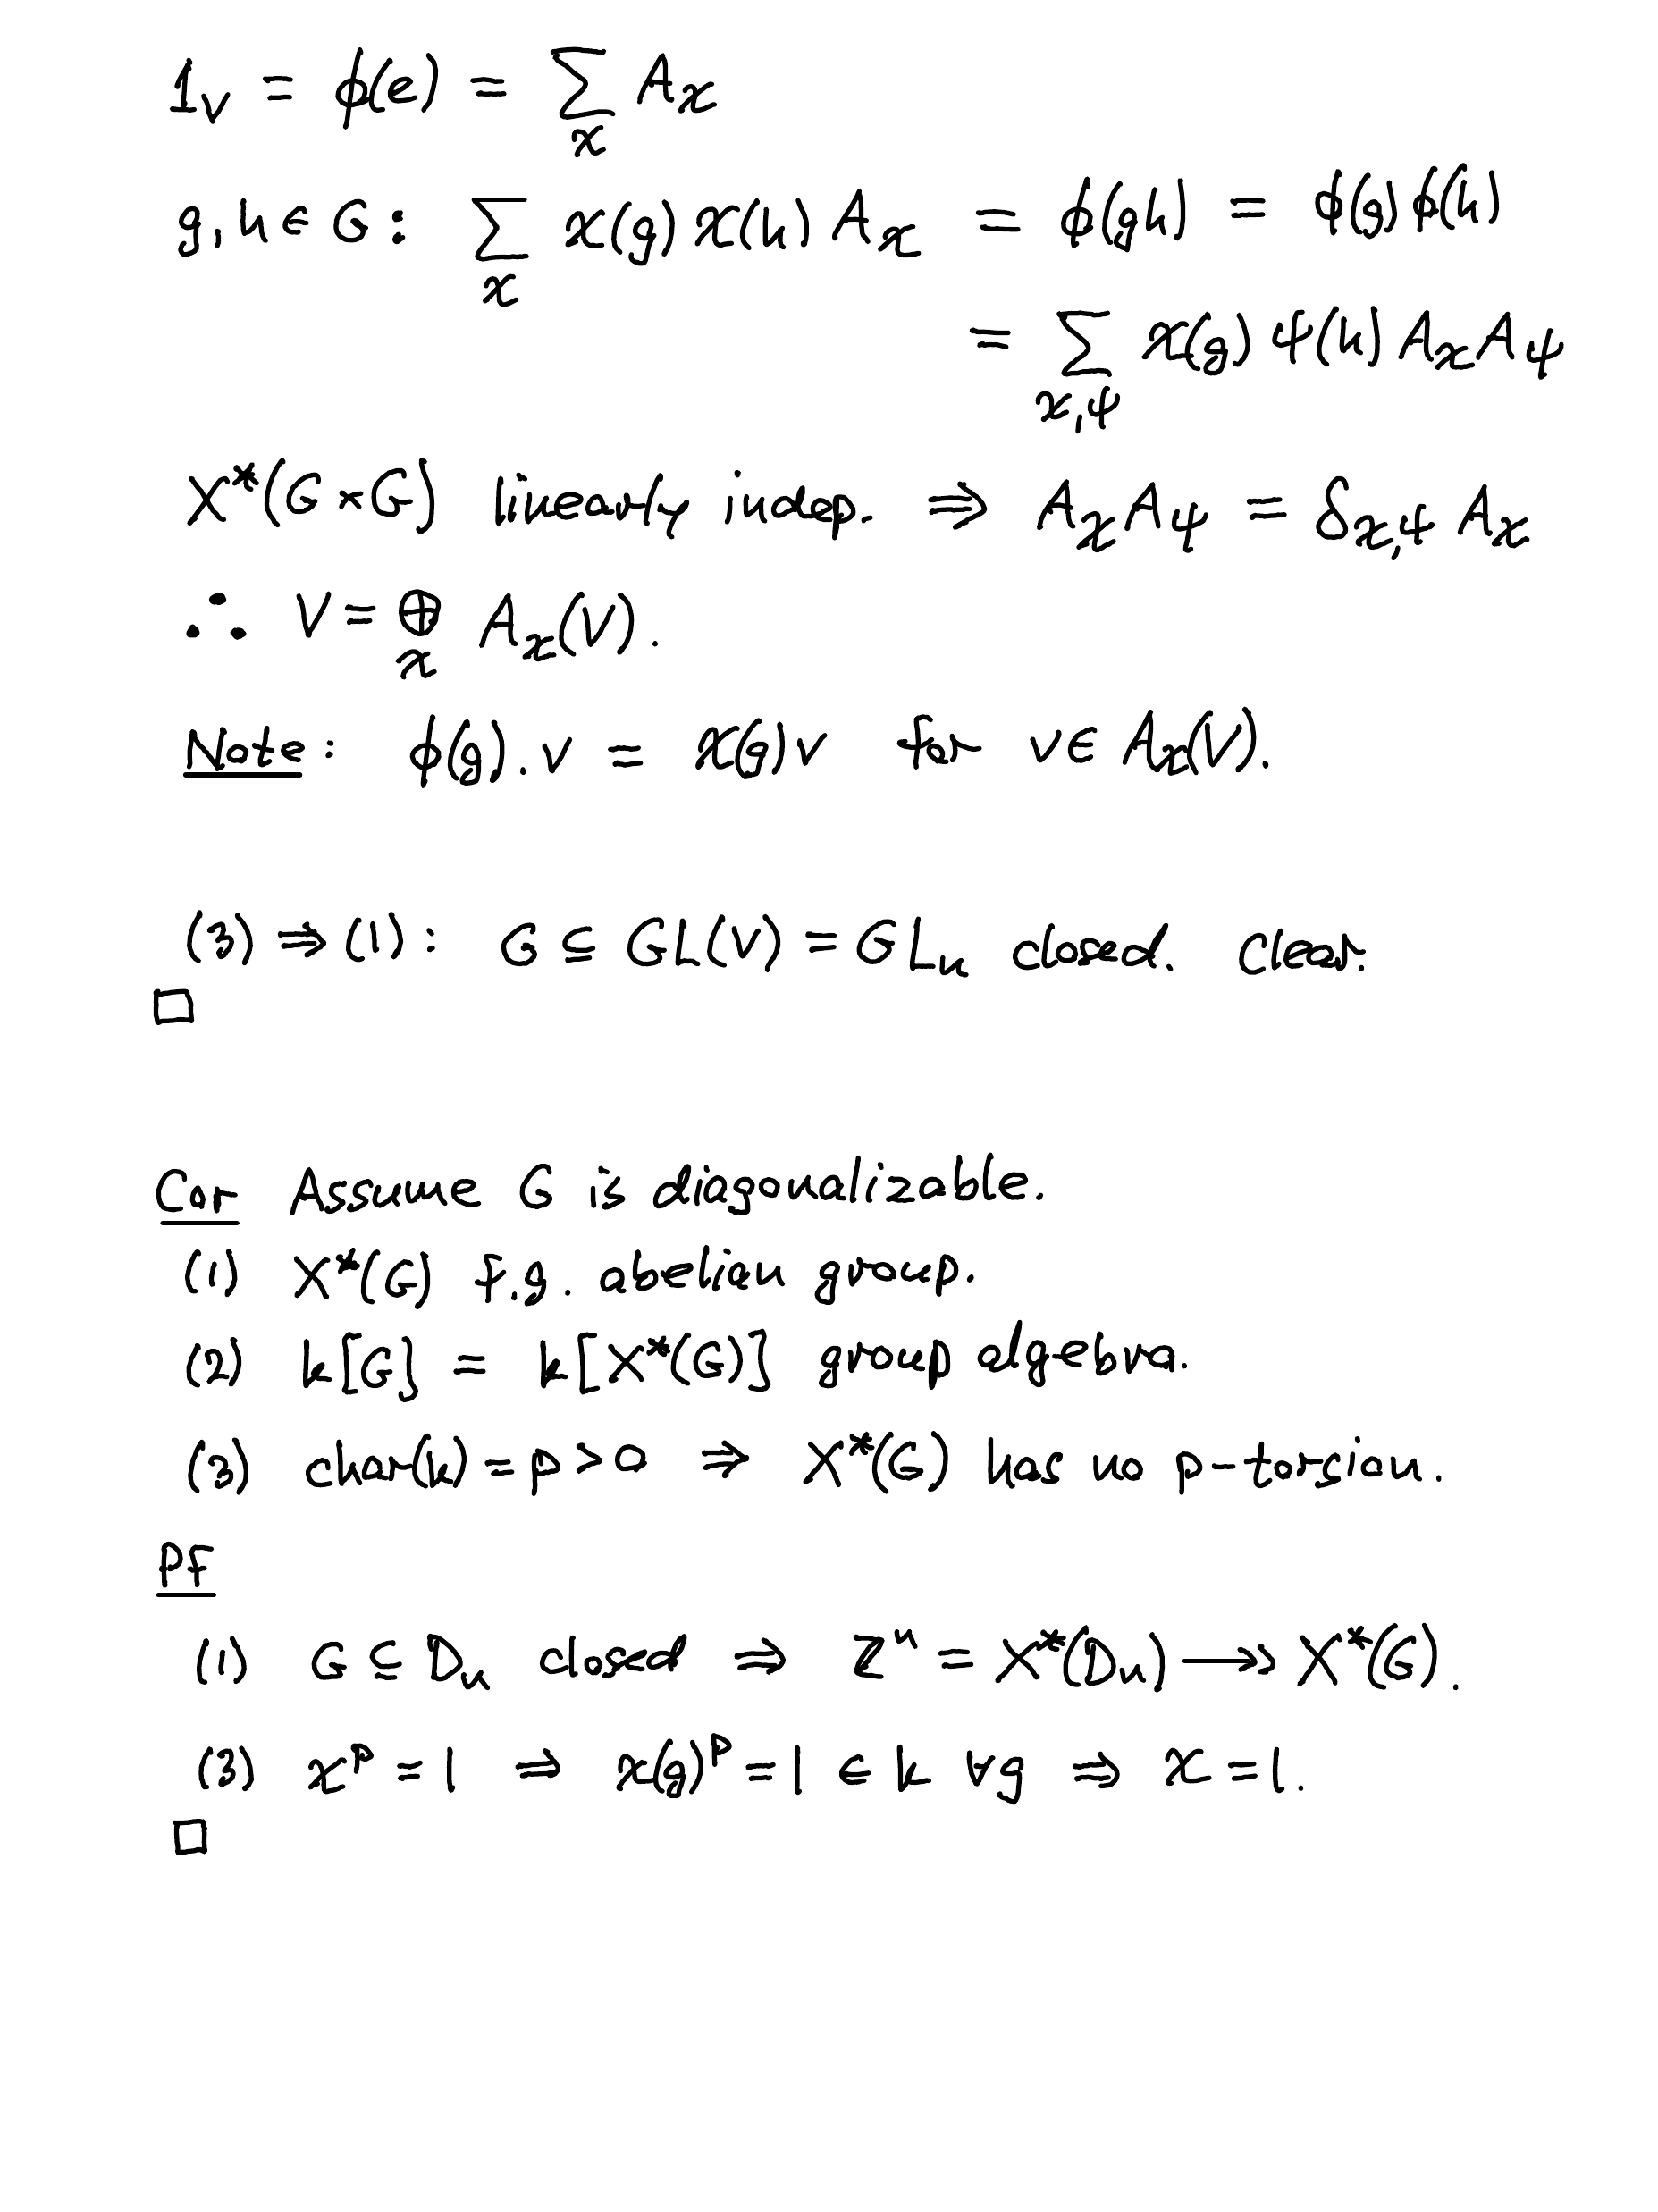 1_V = ϕ(e) = Σ_χ A_χ
g,h ∈ G: Σ_χ χ(g) χ(h) A_χ = ϕ(gh) = ϕ(g) ϕ(h)
= Σ_{χ,ψ} χ(g) ψ(h) A_χ A_ψ
X*(G×G) linearly indep. ⇒ A_χ A_ψ = δ_{χ,ψ} A_χ
∴ V = ⊕_χ A_χ(V).
Note: ϕ(g).v = χ(g)v for v ∈ A_χ(V).
(3) ⇒ (1): G ⊆ GL(V) = GL_n closed. Clear.
□
Cor Assume G is diagonalizable.
(1) X*(G) f.g. abelian group.
(2) k[G] = k[X*(G)] group algebra.
(3) char(k) = p > 0 ⇒ X*(G) has no p-torsion.
Pf
(1) G ⊆ D_n closed ⇒ Z^n = X*(D_n) ↠ X*(G).
(3) χ^p = 1 ⇒ χ(g)^p = 1 ∈ k ∀g ⇒ χ = 1.
□